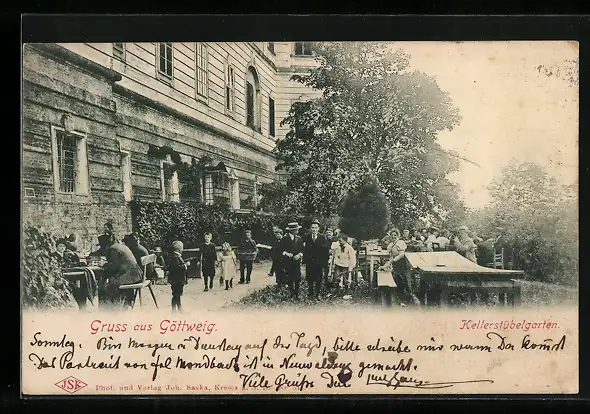 Gruss aus Göttweig.
Kellerstübelgarten.
Sonntag. Bin Morgen u Dienstag auf der Jagd, bitte schreibe mir wann Du komst
das Portrait von ist in Neuwaldegg gemacht.
Viele Grüße Dein
JSK Phot. und Verlag Joh. Saska, Krems a. d. D.